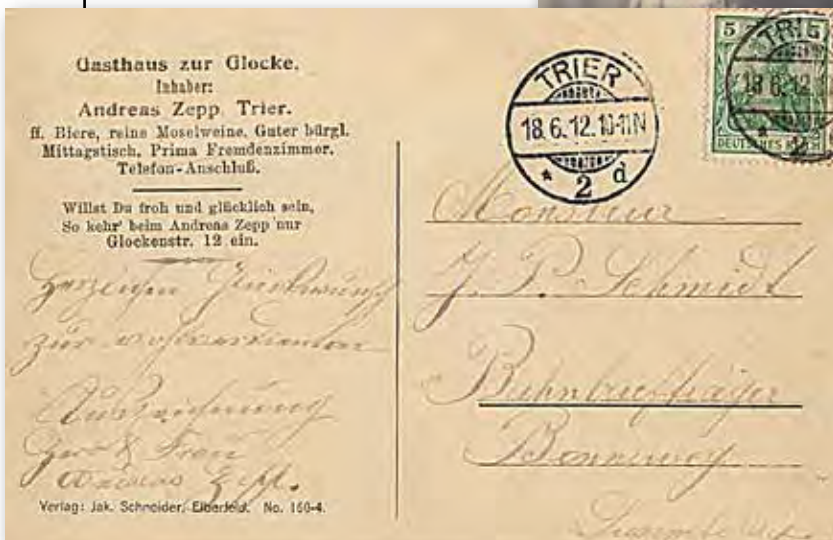 Gasthaus zur Glocke.
Inhaber:
Andreas Zepp Trier.
ff. Biere, reine Moselweine. Guter bürgl.
Mittagstisch. Prima Fremdenzimmer.
Telefon-Anschluß.
Willst Du froh und glücklich sein,
So kehr' beim Andreas Zepp nur
Glockenstr. 12 ein.
Herzlichen Glückwunsch
zur wohlverdienten
Auszeichnung
Herr & Frau
Andreas Zepp.
Verlag: Jak. Schneider, Elberfeld. No. 160-4.
TRIER
18.6.12.10-11N
* 2 d
5
DEUTSCHES REICH
TRIER
18.6.12
Monsieur
J. P. Schmidt
Bahnbriefträger
Bonneweg
Luxemburg